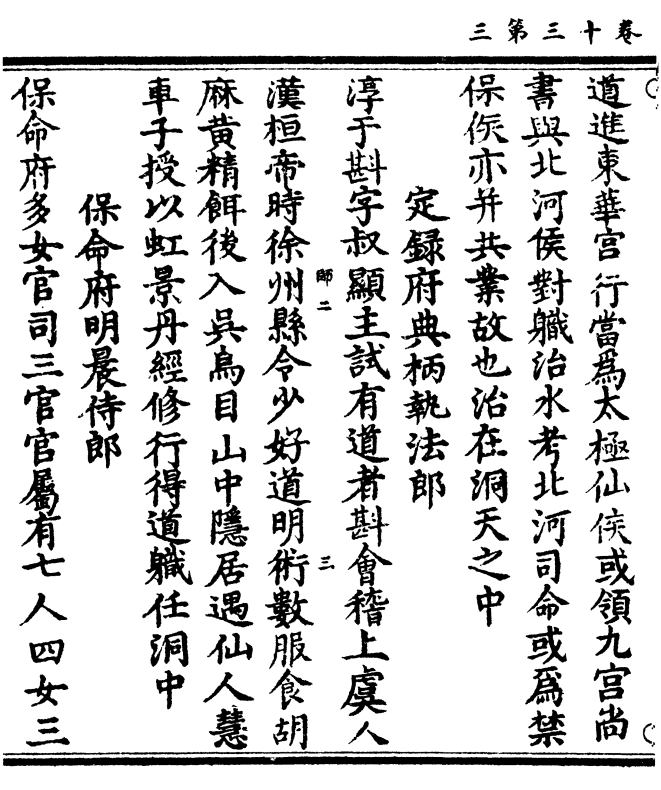 卷十三第三
道進東華宮行當爲太極仙侯或領九宮尚
書與北河侯對職治水考北河司命或爲禁
保侯亦并共業故也治在洞天之中
定録府典柄執法郎
淳于斟字叔顯主試有道者斟會稽上虞人
漢桓帝時徐州縣令少好道明術數服食胡
師二
三
麻黄精餌後入吳烏目山中隱居遇仙人慧
車子授以虹景丹經修行得道職任洞中
保命府明晨侍郎
保命府多女官司三官官屬有七人四女三